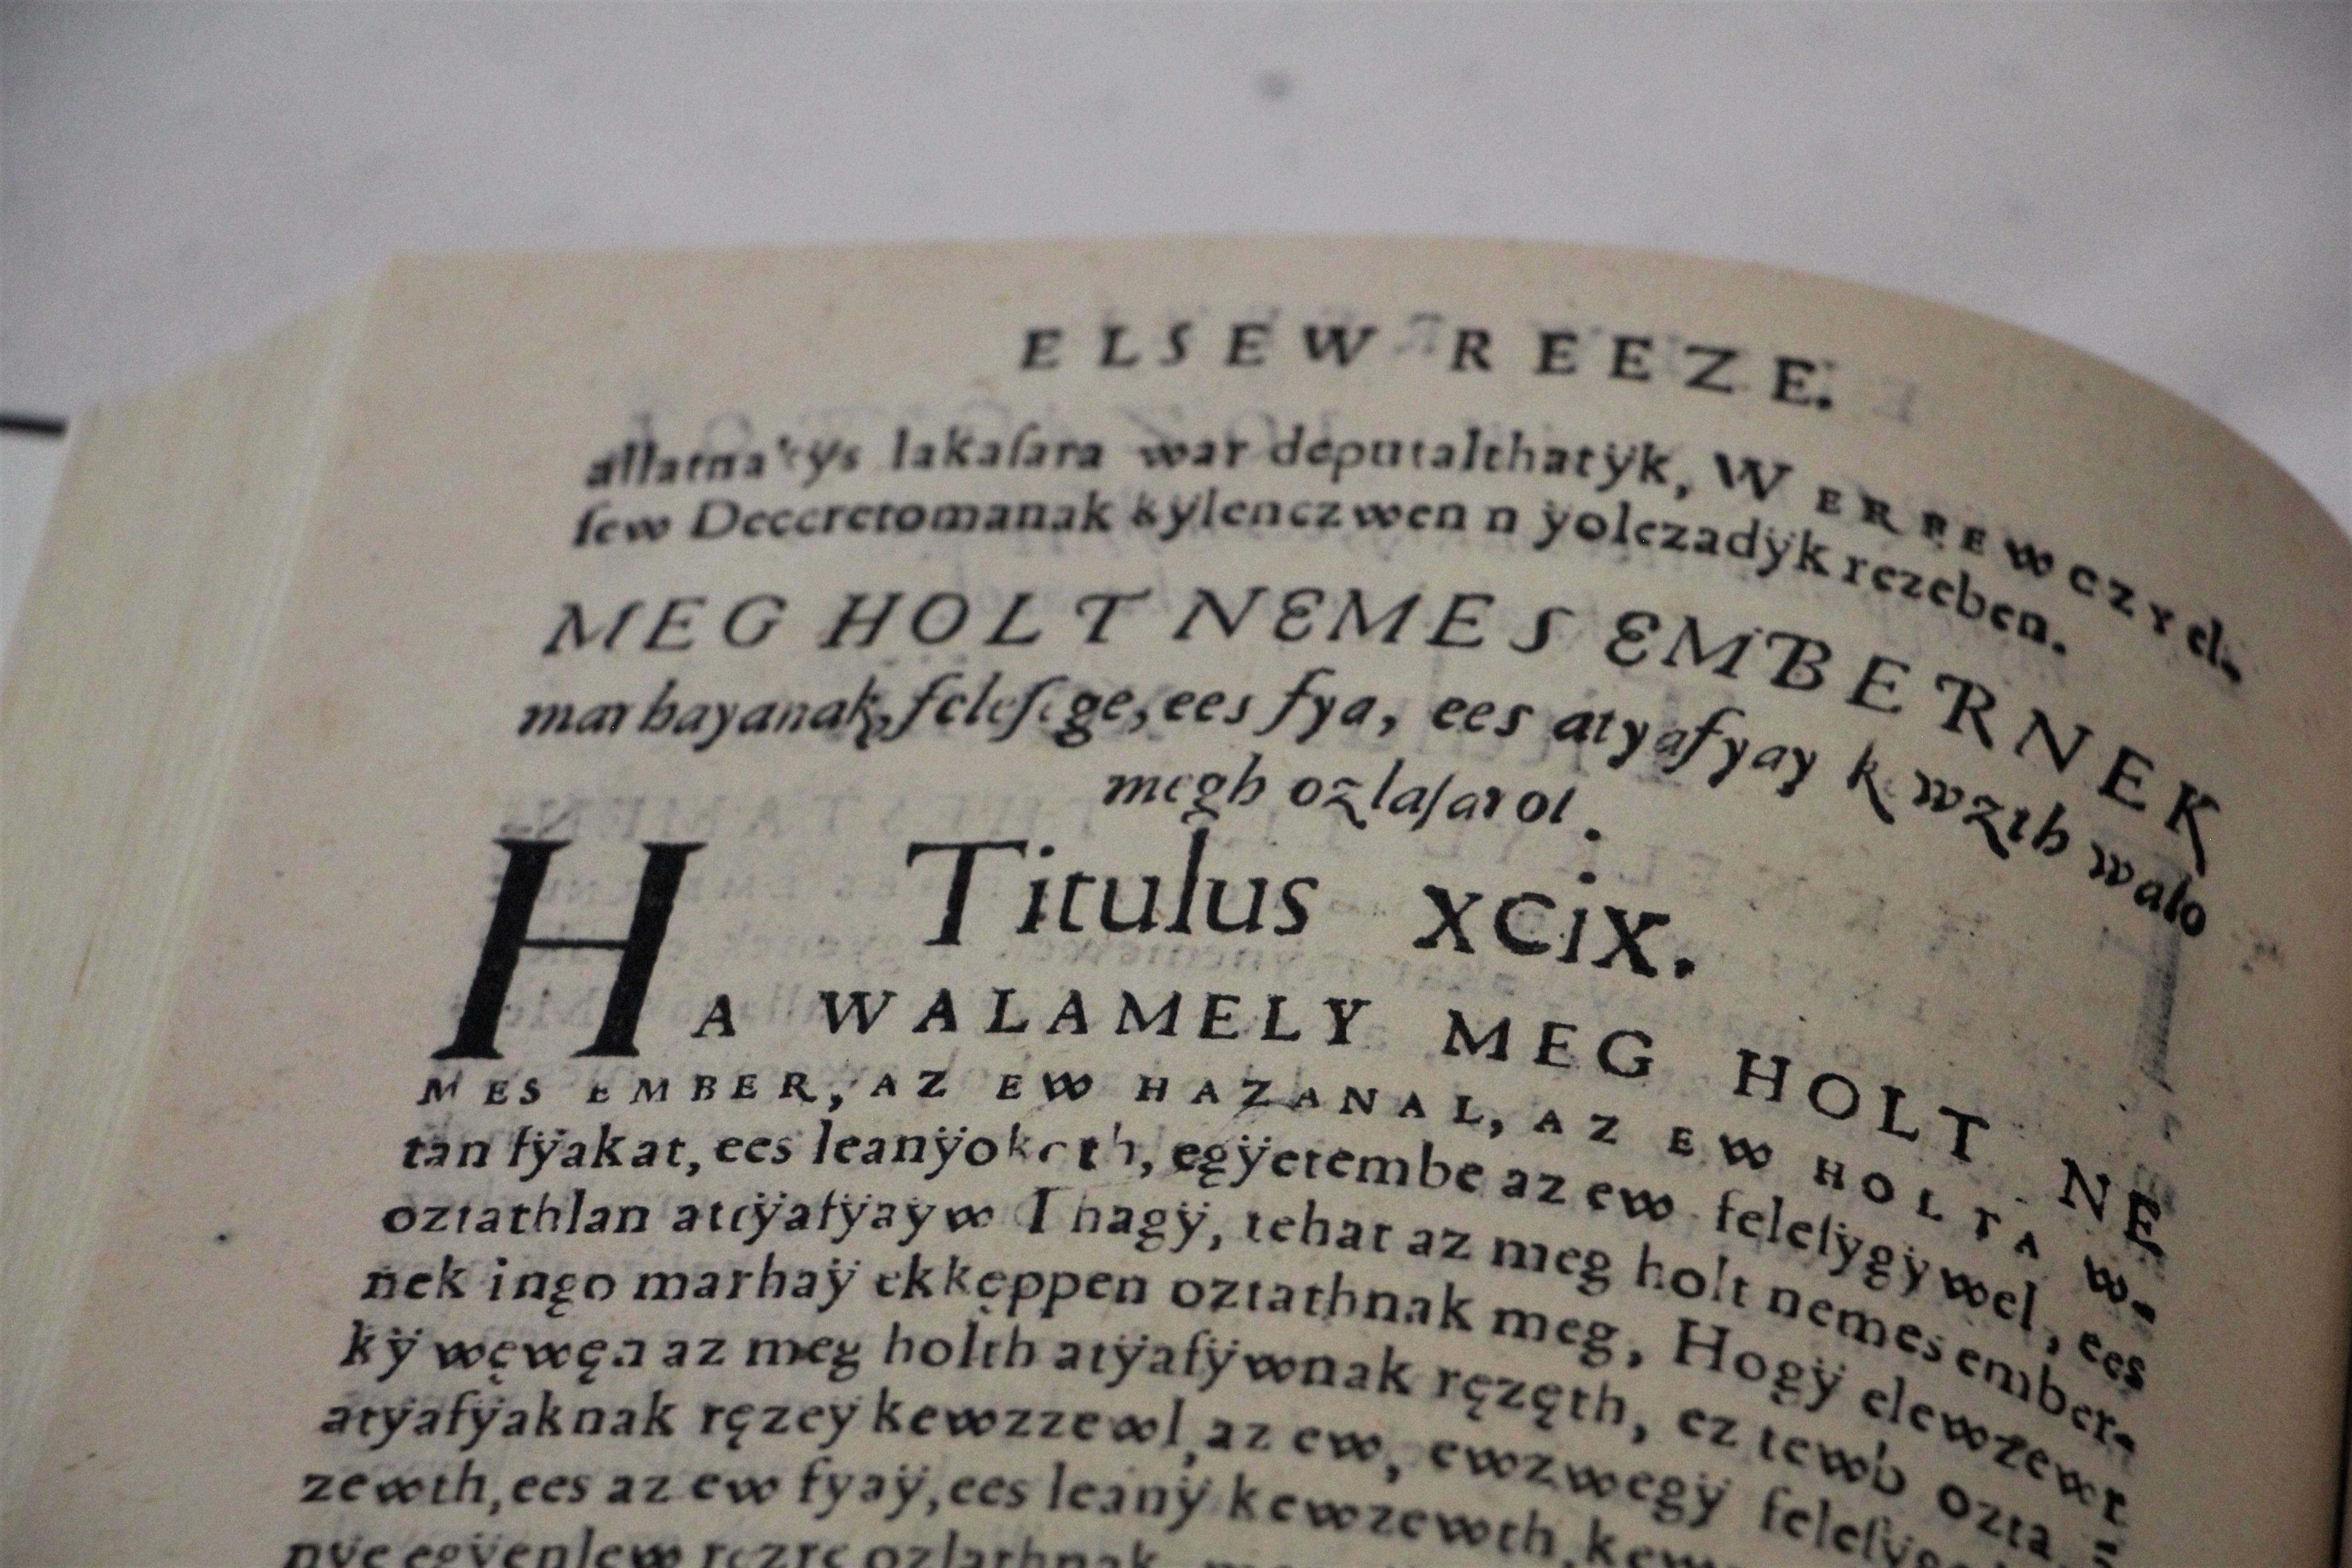 ELSEW REEZE.
lakaſara war deputalthatÿk, WERBEWCZY el-
ſew Deccretomanak kÿlenczwen n ÿolczadÿk rezeben.
MEG HOLT NEMES EMBERNEK
marhayanak, feleſege, ees fya, ees atyafyay kwzth walo
megh ozlaſarol.
Titulus xcix.
HA WALAMELY MEG HOLT NE
MES EMBER, AZ EW HAZANAL, AZ EW HOLTA W-
tan fÿakat, ees leanÿokath, egÿetembe az ew feleſÿgÿwel, ees
oztathlan attÿafÿaÿw Thagÿ, tehat az meg holt nemes ember-
nek ingo marhaÿ ekkęppen oztathnak meg, Hogÿ elewzewr
kÿ węwęn az meg holth atÿafÿwnak ręzęth, ez tewb ozta
atÿafÿaknak ręzeÿ kewzzewl, az ew, ewzwegÿ
zewth, ees az ew fyaÿ, ees leanÿ kewzewth
nÿe egÿenlew rezre ozlathnak